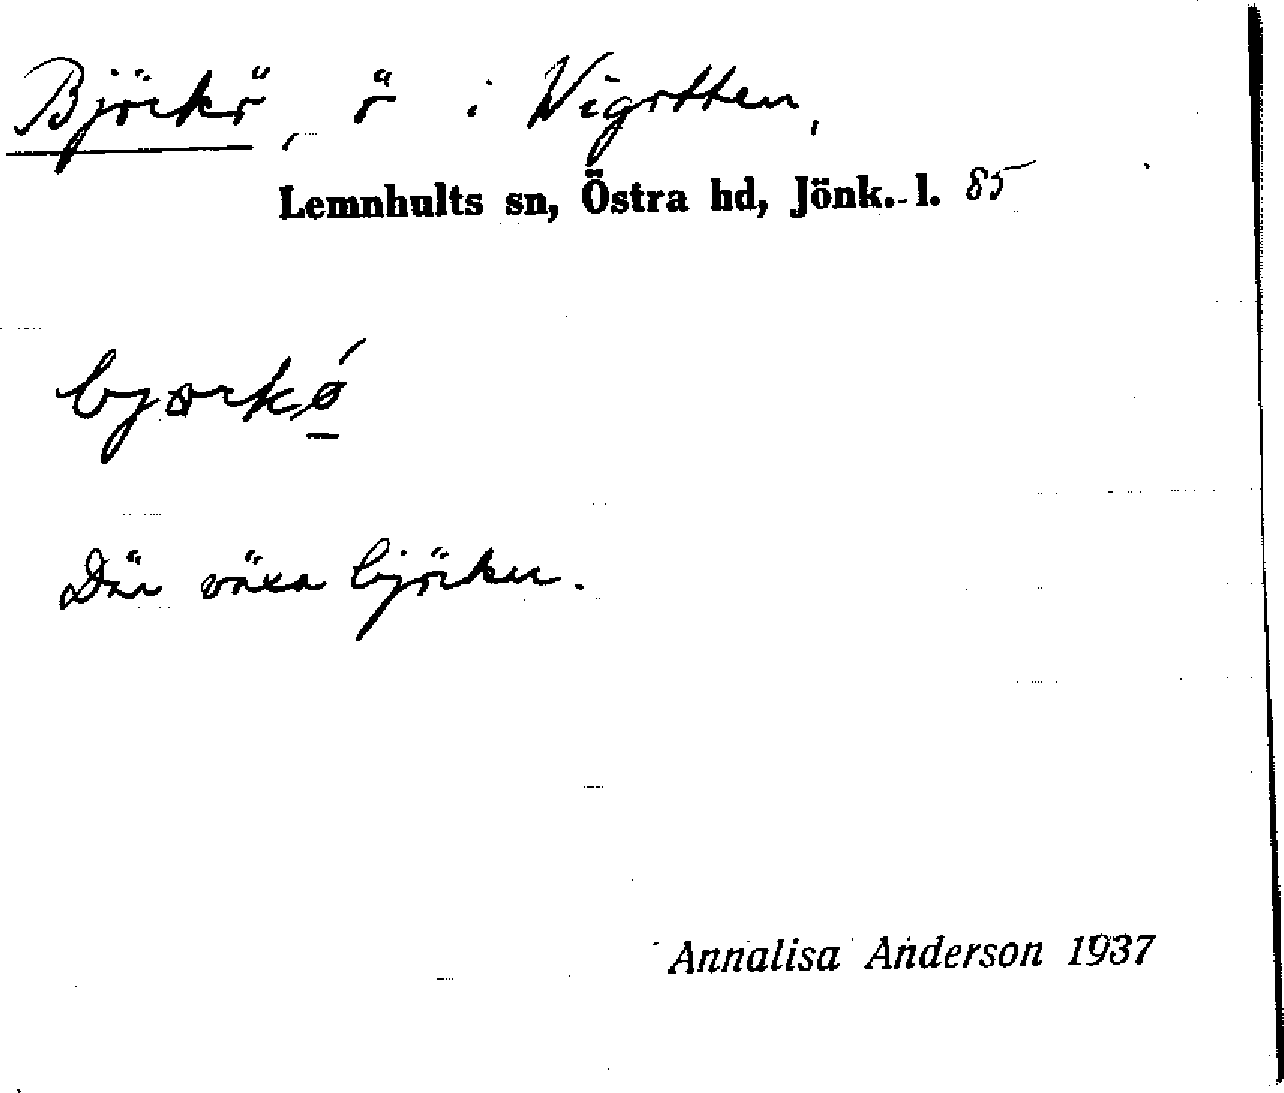 Björkö, ö i Wigotten,
Lemnhults sn, Östra hd, Jönk. l. 85
bjørkǿ
Där växa björkar.
Annalisa Anderson 1937